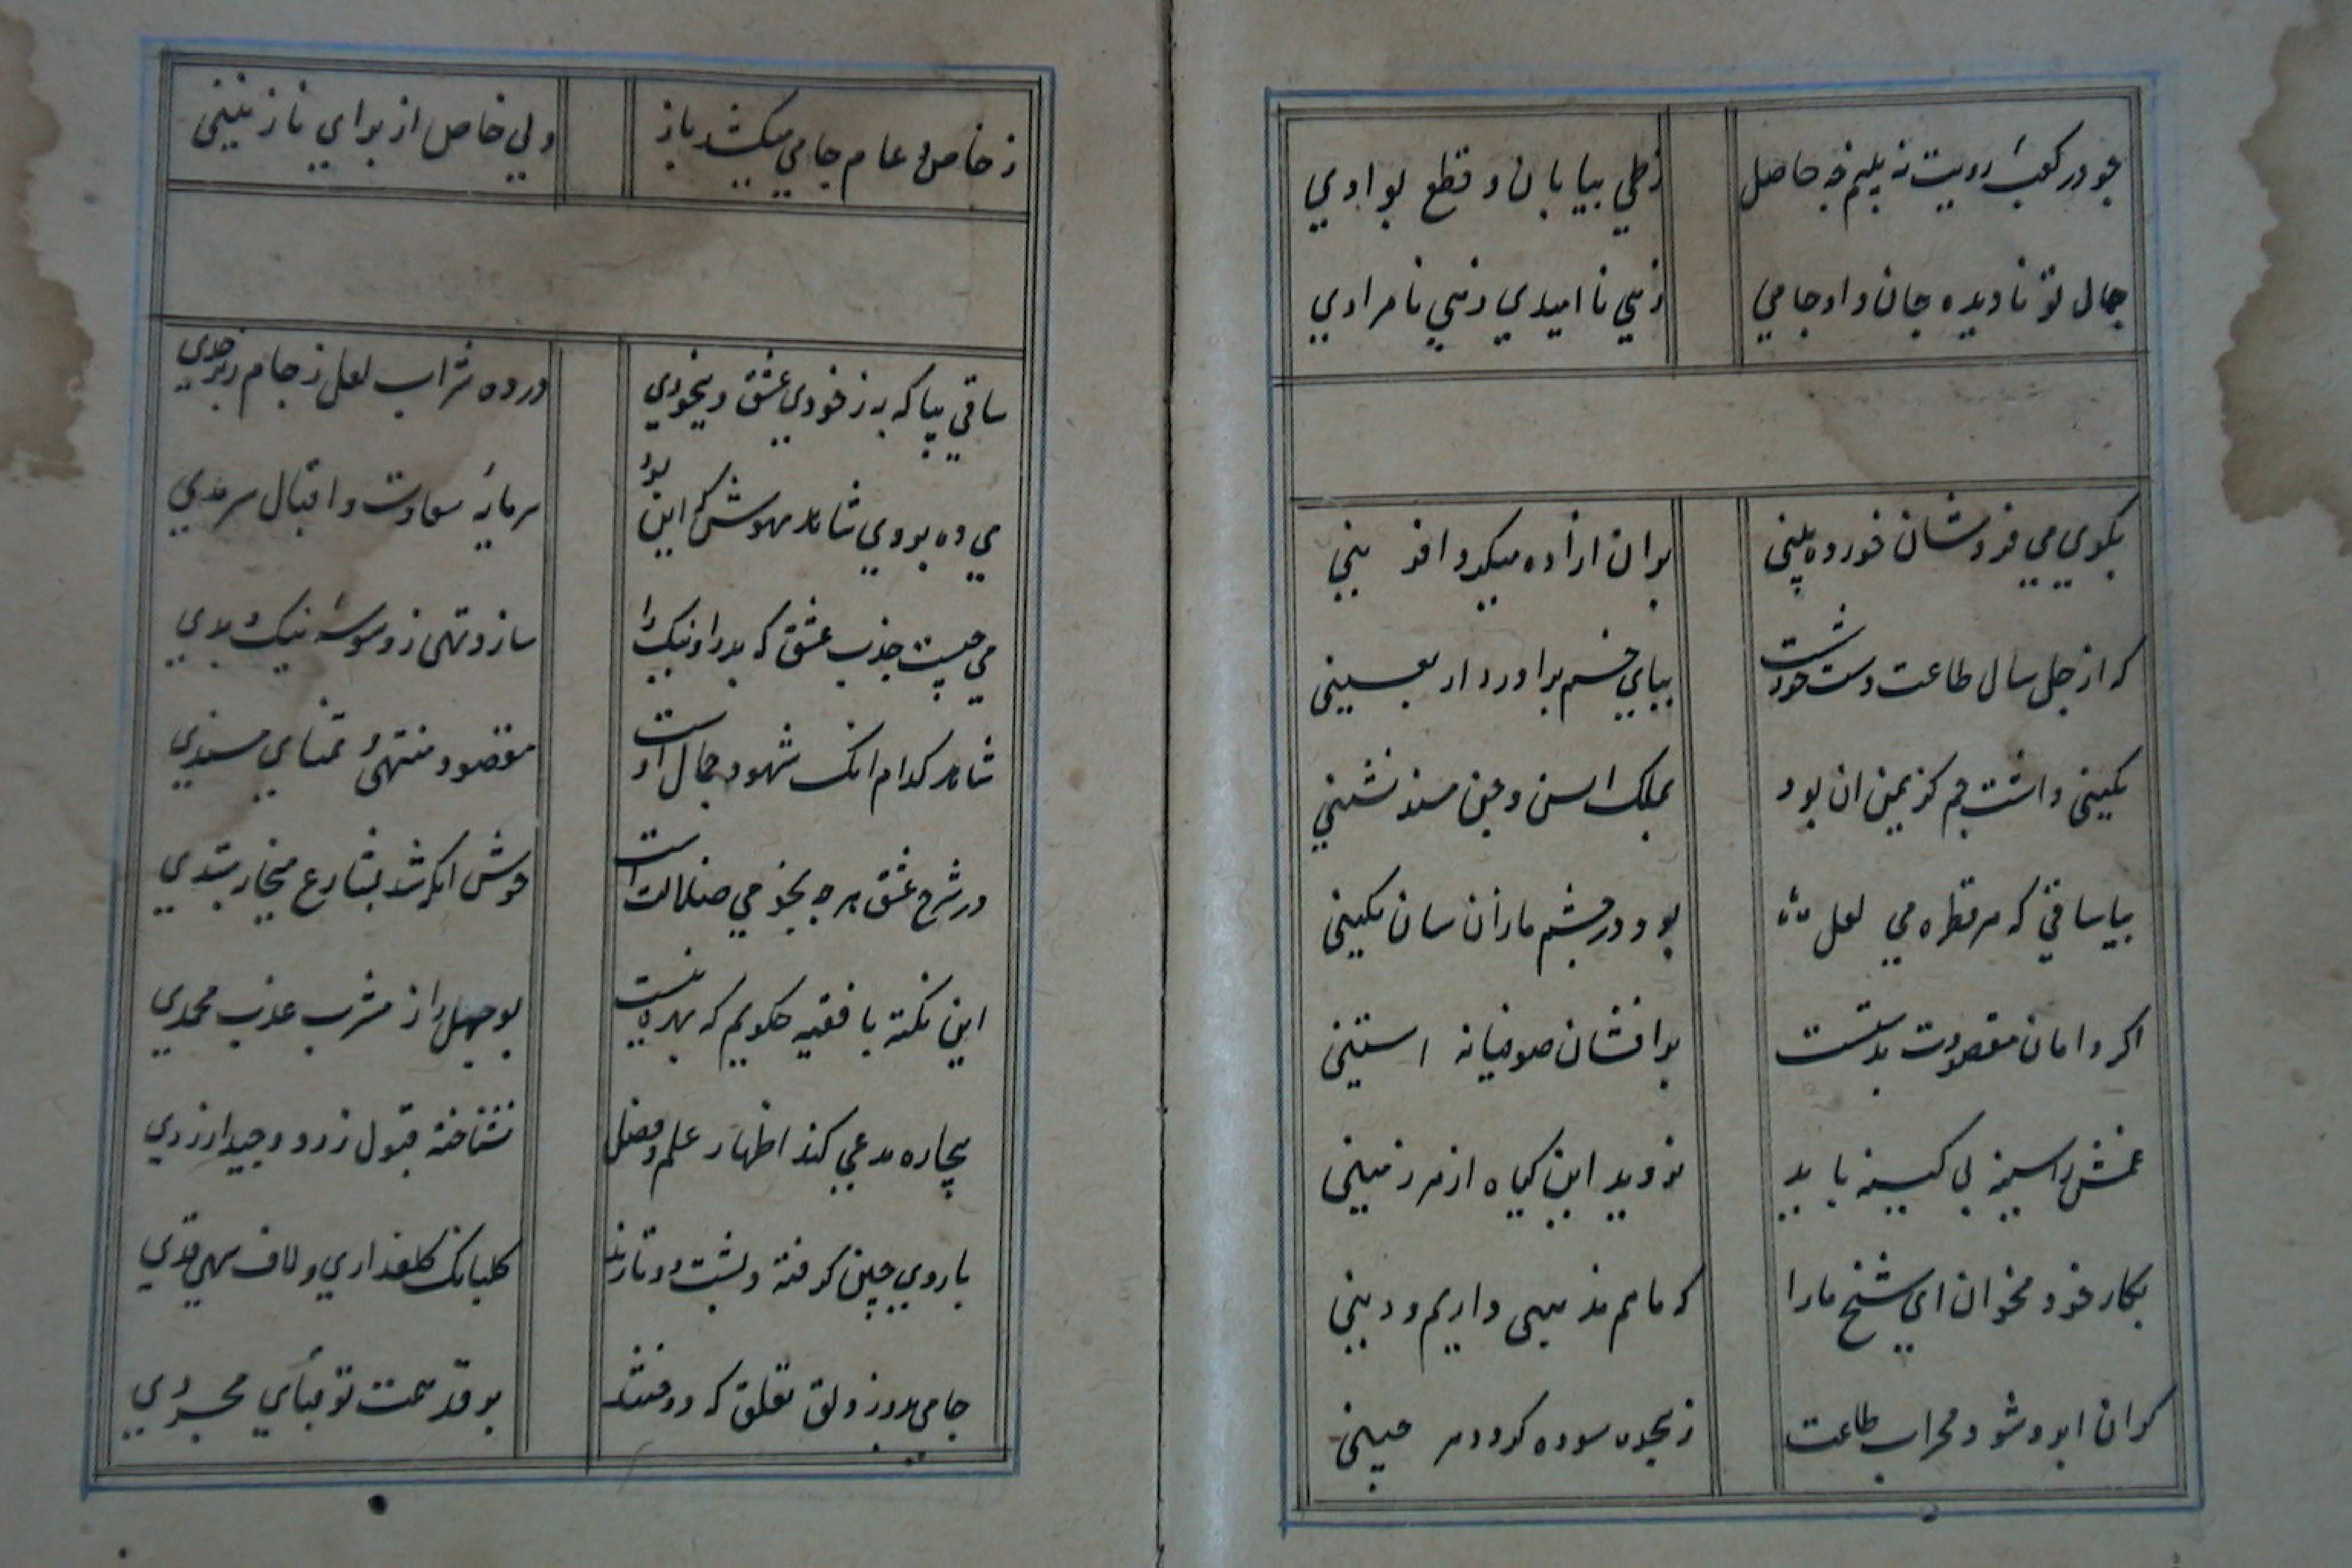 چو در کعبه رویت نه بینم چه حاصل زطي بیابان و قطع بوادي
جمال تو نادیده جان داد جامي زهي نا امیدي زهي نا مرادي
بکوي مي فروشان خورده بیني بران ازاده میکرد افریني
که از چل سال طاعت دست خود شست بپاي خم براورد اربعیني
نکیني داشت جم کز یمن ان بود بملک انس و جن مسند نشیني
بیا ساقي که هر قطره مي لعل بود در چشم ما زان سان نکیني
اکر دامان مقصودت بدستست برافشان صوفیانه استیني
غمش را سینه بي کینه باید نروید این کیاه از هر زمیني
بکار خود مخوان اي شیخ مارا که ما هم مذهبي داریم و دیني
کران ابرو شود محراب طاعت ز سجده سوده کردد هر جبیني
ز خاص و عام جامي میکشد ناز ولي خاص از براي نازنیني
ساقي بیا که به ز خودي عشق و بیخودي در ده شراب لعل ز جام زبرجدي
مي ده بروي شاهد مهوش که این بود سرمایه سعادت و اقبال سرمدي
مي چیست جذب عشق که بد را و نیک را سازد تهي ز وسوسه نیک و بدي
شاهد کدام انک شهود جمال اوست مقصود منتهي و تمناي مبتدي
در شرح عشق هر چه بجز مي ضلالت است خوش انکه شد بشارع میخانه مهتدي
این نکته با فقیه چکویم که بهره نیست بوجهل را ز مشرب عذب محمدي
بیچاره مدعي کند اظهار علم و فضل نشناخته قبول ز رد و جید از ردي
با روي چین کرفته و پشت دوتا زند کلبانک کلعذاري و لاف سهي قدي
جامي بدوز دلق تعلق که دوختند بر قد همت تو قباي مجردي